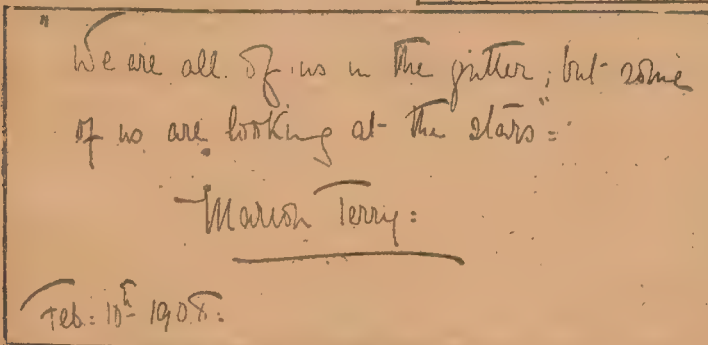 "We are all of us in the gutter, but some
of us are looking at the stars"=
Marion Terry:
Feb: 10th 1908: